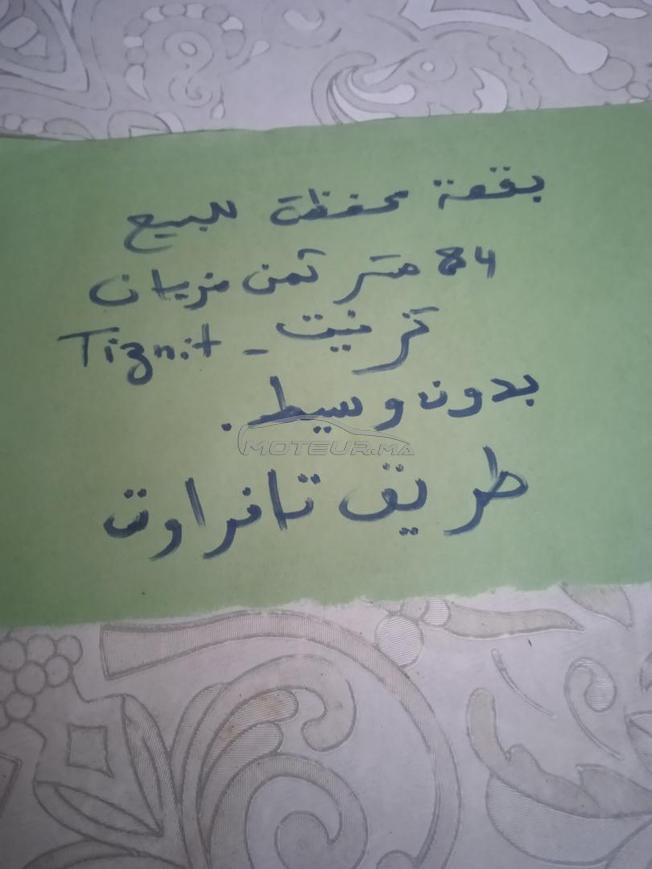 بقعة محفظة للبيع
84 متر ثمن مزيان
تزنيت - Tiznit
بدون وسيط.
MOTEUR.MA
طريق تافراوت